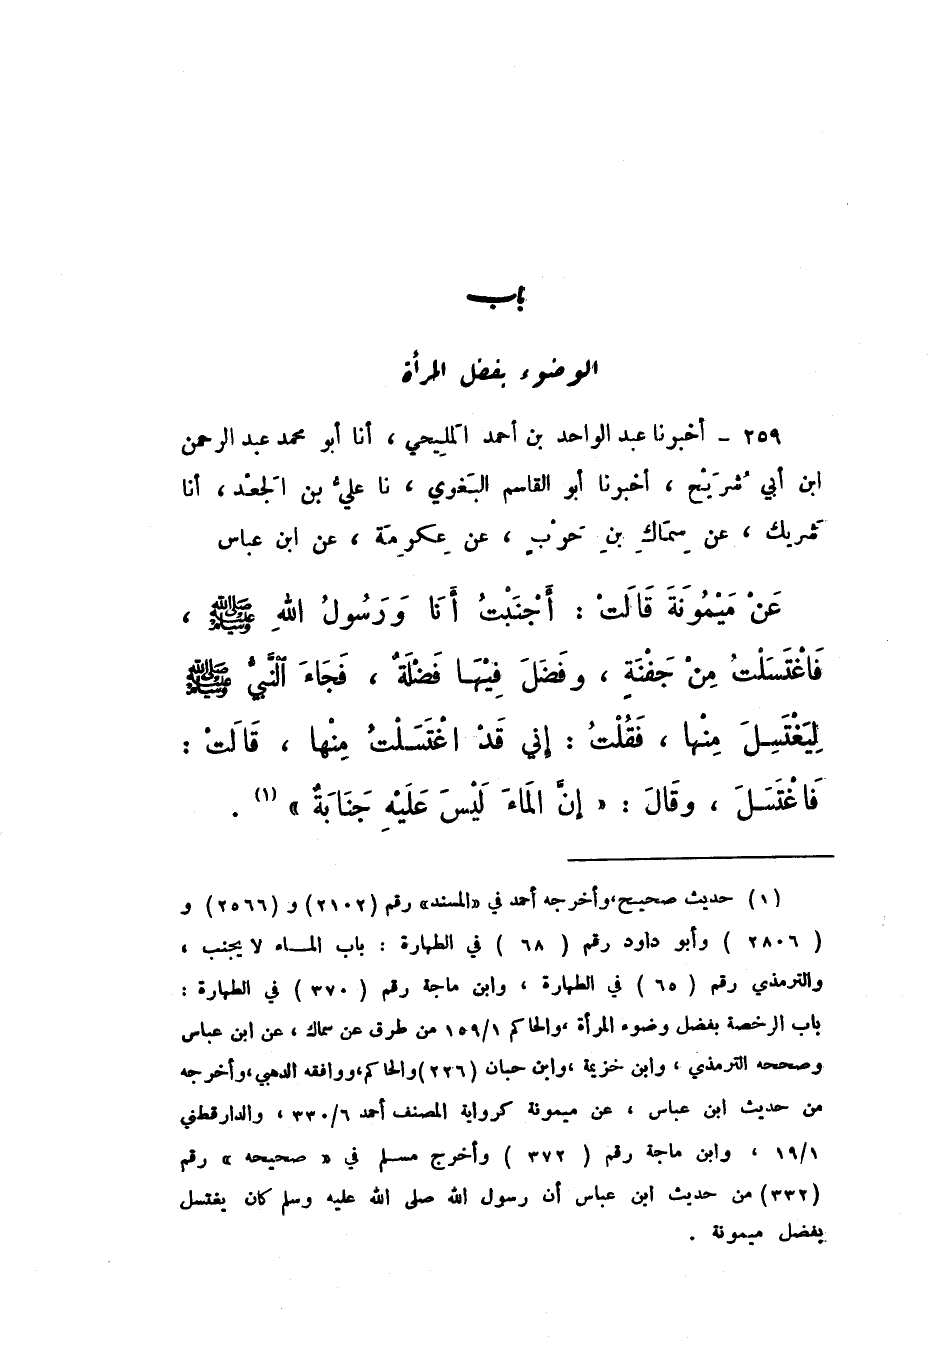 باب
الوضوء بفضل المرأة
٢٥٩ - أخبرنا عبد الواحد بن أحمد المَليحي ، أنا أبو محمد عبد الرحمن
ابن أبي شُرَيْح ، أخبرنا أبو القاسم البَغوي ، نا عليُّ بن الجَعْد ، أنا
شَريك ، عن سِمَاكِ بنِ حَرْبٍ ، عن عِكرِمَة ، عن ابن عباس
عَنْ مَيْمُونَةَ قَالَتْ : أَجْنَبْتُ أَنَا وَرَسُولُ اللهِ ﷺ ،
فَاغْتَسَلْتُ مِنْ جَفْنَةٍ ، وفَضَلَ فِيْهَا فَضْلَةٌ ، فَجَاءَ النَّبيُّ ﷺ
لِيَغْتَسِلَ مِنْها ، فَقُلْتُ : إني قَدْ اغْتَسَلْتُ مِنْها ، قَالَتْ :
فَاغْتَسَلَ ، وقَالَ : « إنَّ المَاءَ لَيْسَ عَلَيْهِ جَنَابَةٌ » (١) .
(١) حديث صحيح،وأخرجه أحمد في «المسند» رقم (٢١٠٢) و (٢٥٦٦) و
( ٢٨٠٦ ) وأبو داود رقم ( ٦٨ ) في الطهارة : باب الماء لا يجنب ،
والترمذي رقم ( ٦٥ ) في الطهارة ، وابن ماجة رقم ( ٣٧٠ ) في الطهارة :
باب الرخصة بفضل وضوء المرأة ،والحاكم ١٥٩/١ من طرق عن سماك ، عن ابن عباس
وصححه الترمذي ، وابن خزيمة ،وابن حبان (٢٢٦)والحاكم،ووافقه الذهبي،وأخرجه
من حديث ابن عباس ، عن ميمونة كرواية المصنف أحمد ٣٣٠/٦ ، والدارقطني
١٩/١ ، وابن ماجة رقم ( ٣٧٢ ) وأخرج مسلم في « صحيحه » رقم
(٣٣٢) من حديث ابن عباس أن رسول الله صلى الله عليه وسلم كان يغتسل
بفضل ميمونة .